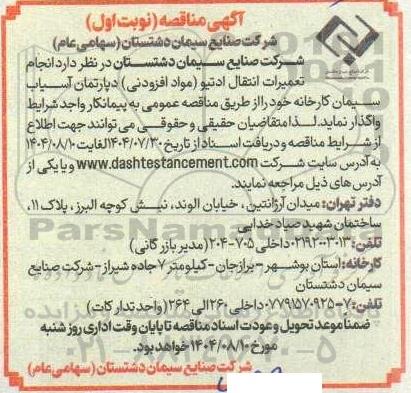 آگهی مناقصه (نوبت اول)
شرکت صنایع سیمان دشتستان (سهامی عام)
شرکت صنایع سیمان دشتستان در نظر دارد انجام
تعمیرات انتقال ادتیو (مواد افزودنی) دپارتمان آسیاب
سیمان کارخانه خود را از طریق مناقصه عمومی به پیمانکار واجد شرایط
واگذار نماید. لذا متقاضیان حقیقی و حقوقی می توانند جهت اطلاع
از شرایط مناقصه و دریافت اسناد از تاریخ ۱۴۰۴/۰۷/۳۰ لغایت ۱۴۰۴/۰۸/۱۰
به آدرس سایت شرکت www.dashtestancement.com و یا یکی از
آدرس های ذیل مراجعه نمایند.
دفتر تهران: میدان آرژانتین، خیابان الوند، نبش کوچه البرز، پلاک ۱۱،
ساختمان شهید صیاد خدایی
تلفن: ۰۲۱۹۲۰۰۳۰۱۳ داخلی ۷۰۵-۲۰۴ (مدیر بازرگانی)
کارخانه: استان بوشهر - برازجان - کیلومتر ۷ جاده شیراز - شرکت صنایع
سیمان دشتستان
تلفن: ۷-۰۷۷۹۱۵۷۰۹۲۵ داخلی ۲۶۰ الی ۲۶۴ (واحد تدارکات)
ضمنا موعد تحویل و عودت اسناد مناقصه تا پایان وقت اداری روز شنبه
مورخ ۱۴۰۴/۰۸/۱۰ خواهد بود.
شرکت صنایع سیمان دشتستان (سهامی عام)